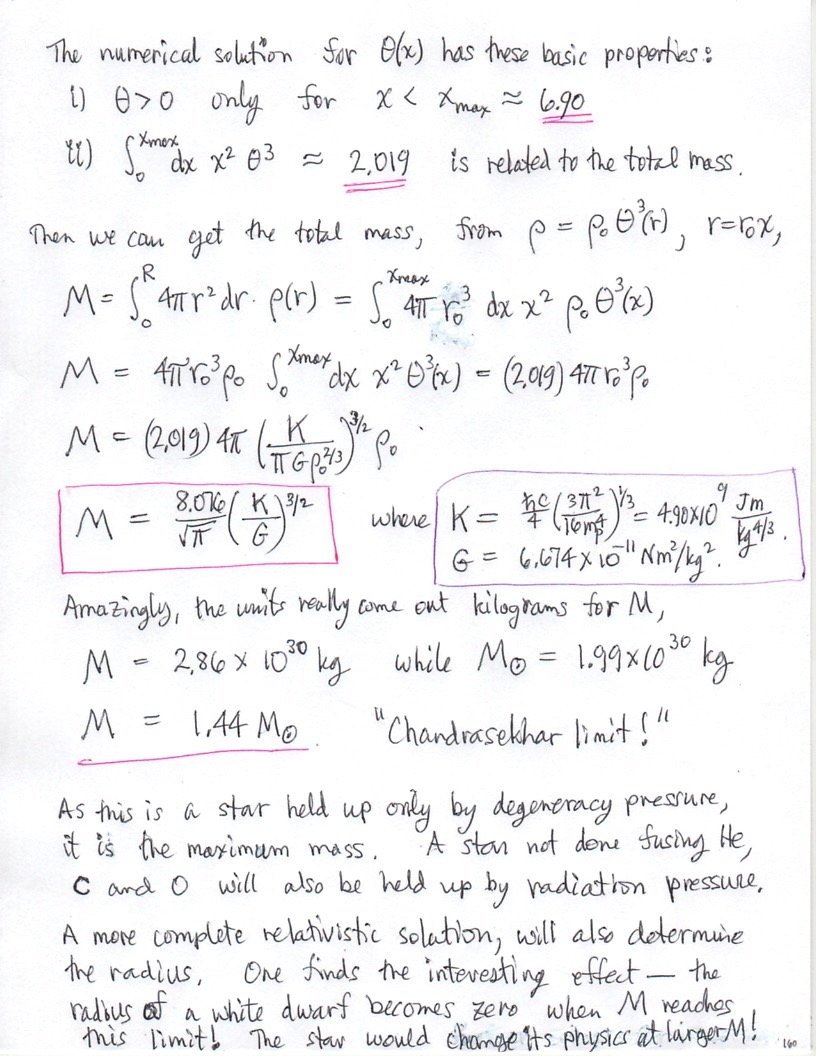 The numerical solution for θ(x) has these basic properties:
i) θ>0 only for x < x_max ≈ 6.90
ii) ∫₀^{x_max} dx x² θ³ ≈ 2.019 is related to the total mass.
Then we can get the total mass, from ρ = ρ₀ θ³(r), r=r₀x,
M = ∫₀^R 4πr² dr · ρ(r) = ∫₀^{x_max} 4π r₀³ dx x² ρ₀ θ³(x)
M = 4πr₀³ρ₀ ∫₀^{x_max} dx x² θ³(x) = (2.019) 4π r₀³ρ₀
M = (2.019) 4π (K/(πGρ₀^{2/3}))^{3/2} ρ₀
M = 8.076/√π (K/G)^{3/2} where K = ħc/4 (3π²/16m_p⁴)^{1/3} = 4.90×10⁹ Jm/kg^{4/3}.
G = 6.674×10⁻¹¹ Nm²/kg².
Amazingly, the units really come out kilograms for M,
M = 2.86 × 10³⁰ kg while M⊙ = 1.99×10³⁰ kg
M = 1.44 M⊙ "Chandrasekhar limit!"
As this is a star held up only by degeneracy pressure,
it is the maximum mass. A star not done fusing He,
C and O will also be held up by radiation pressure.
A more complete relativistic solution, will also determine
the radius. One finds the interesting effect — the
radius of a white dwarf becomes zero when M reaches
this limit! The star would change its physics at larger M!
160